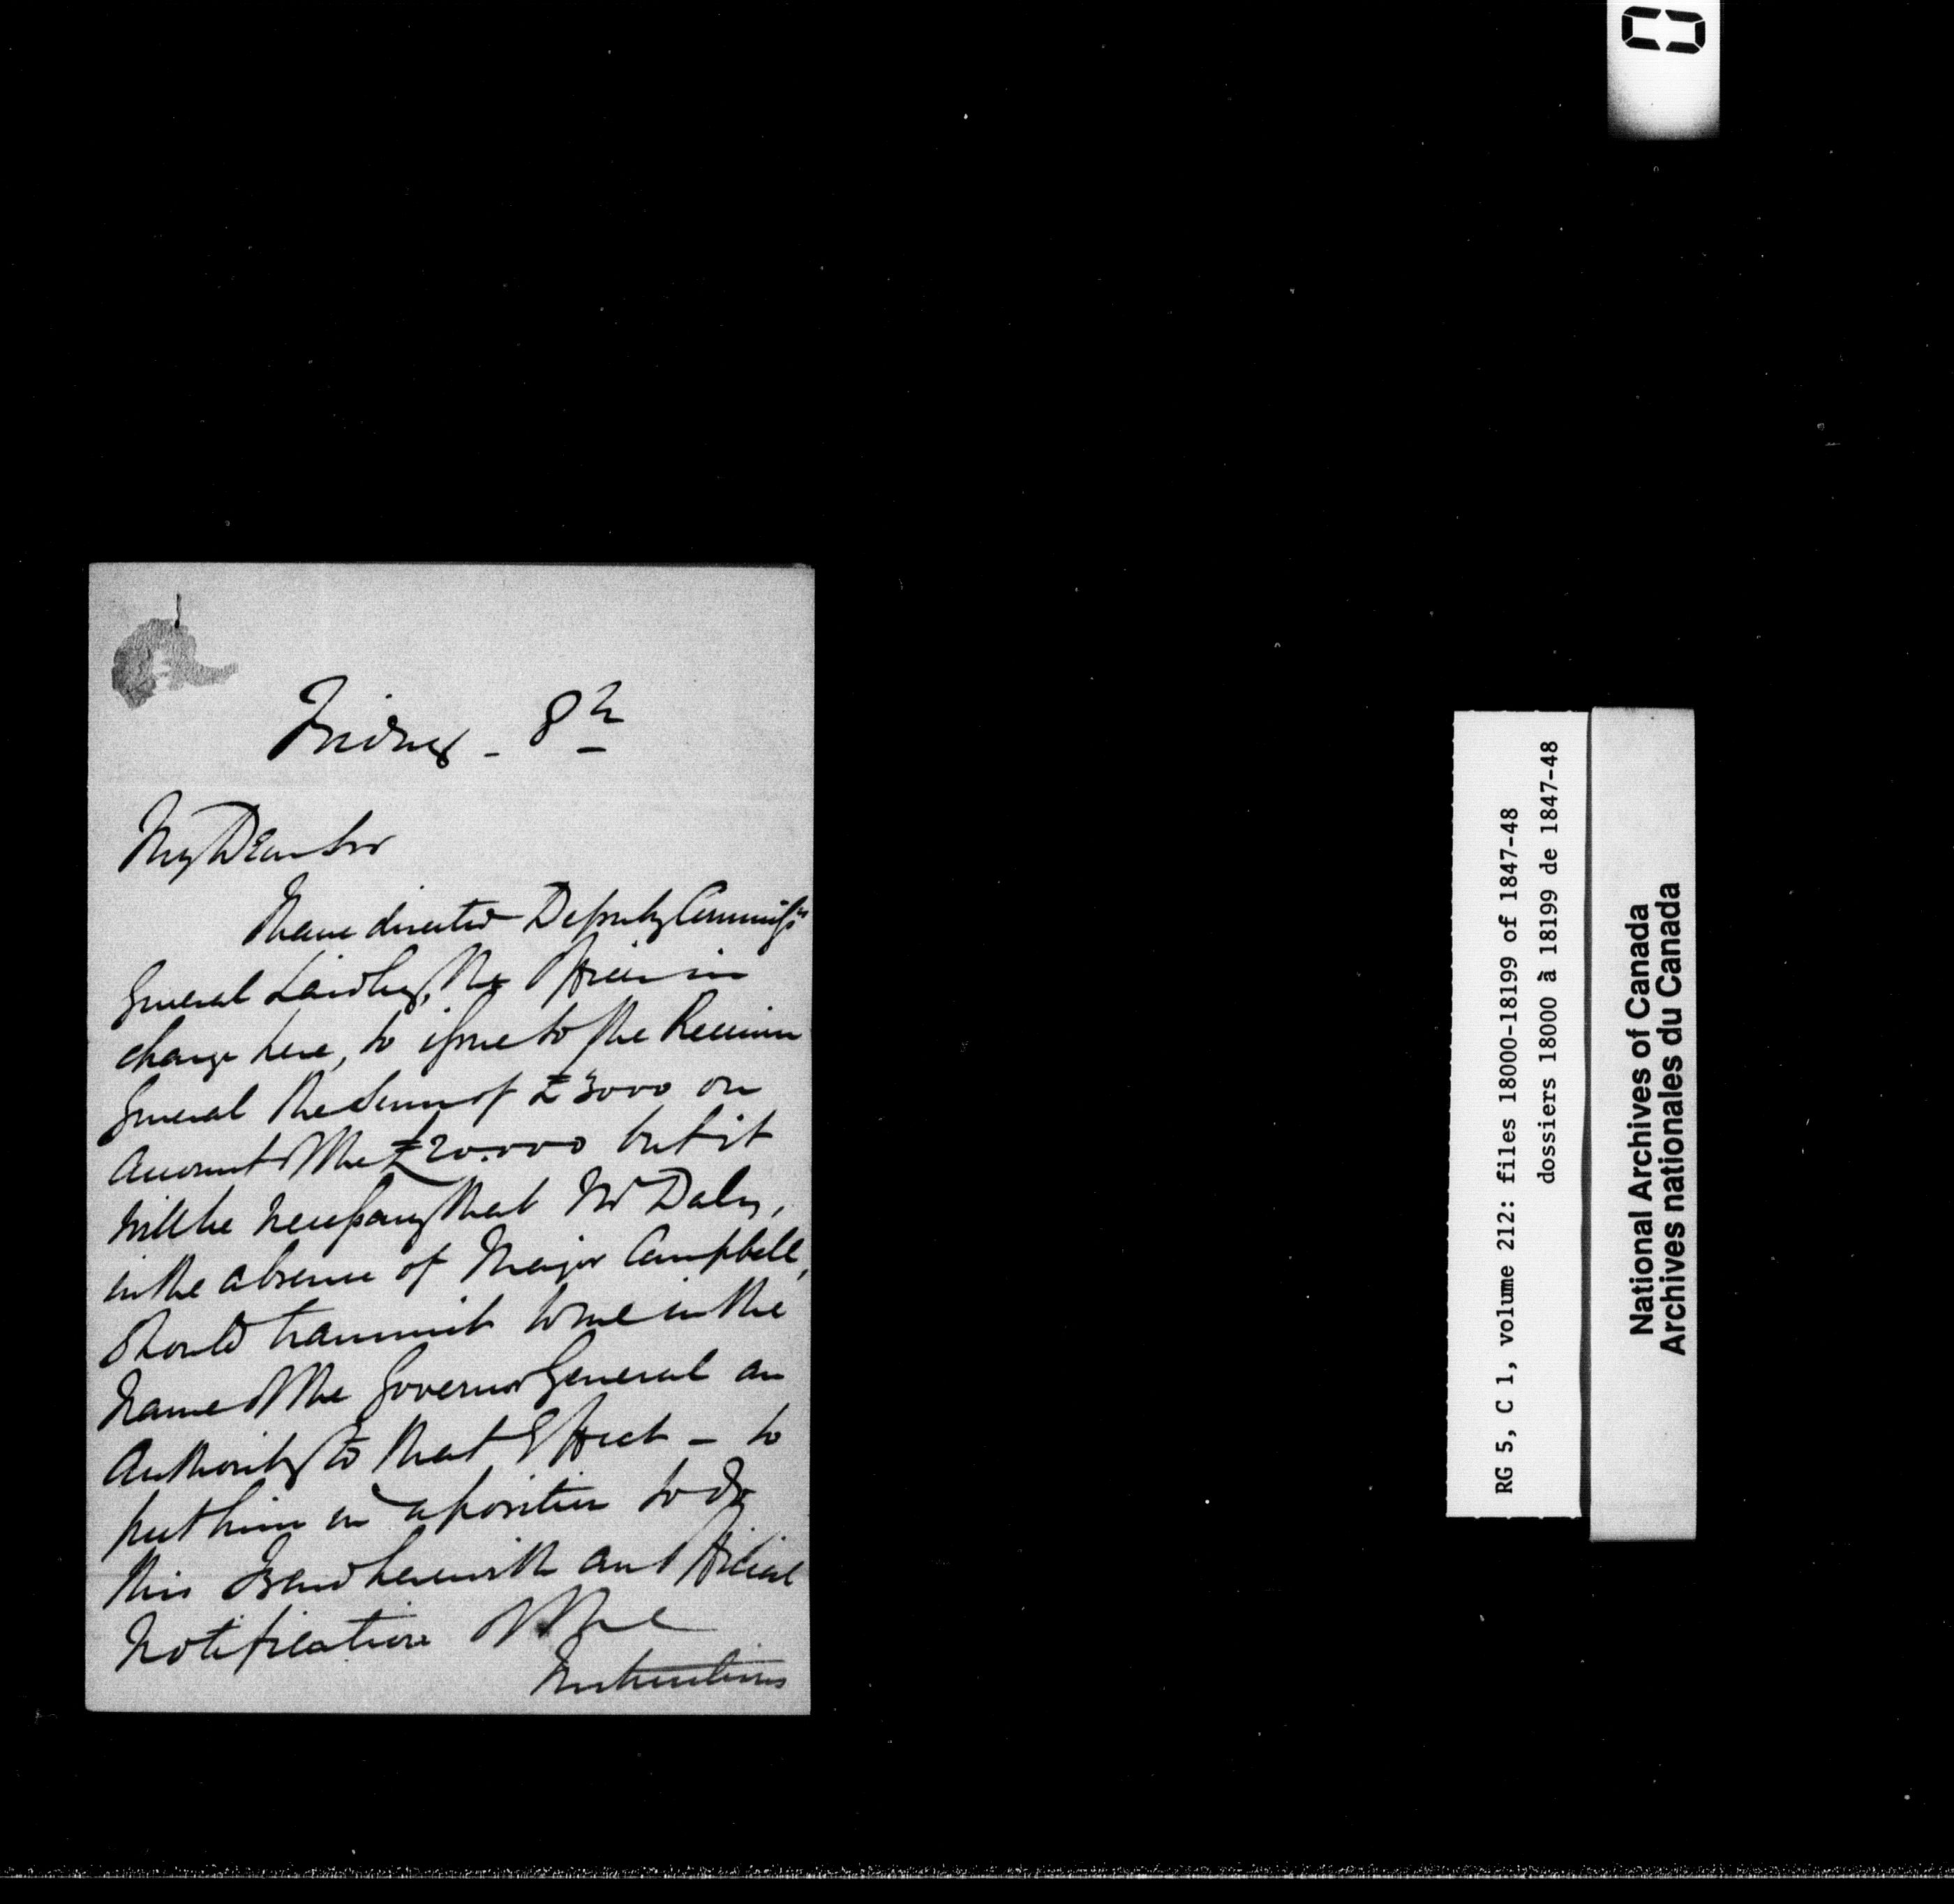 Friday - 8th
My Dear Sir
I have directed Deputy Commissr
General Laidley, the Officer in
charge here, to issue to the Receiver
General the Sum of £3000 on
account of the £20.000 but it
will be necessary that Mr Daly,
in the absence of Major Campbell,
should transmit to me in the
name of the Governor General an
Authority to that Effect - to
put him in a position to do
this I send herewith an Official
Notification of the
Instructions
RG 5, C 1, volume 212: files 18000-18199 of 1847-48
dossiers 18000 à 18199 de 1847-48
National Archives of Canada
Archives nationales du Canada